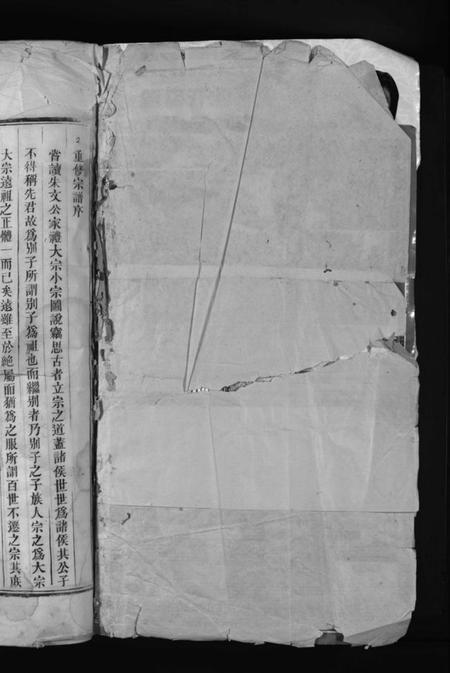 2
重修宗譜序
嘗讀朱文公家禮大宗小宗圖說竊思古者立宗之道蓋諸侯世世爲諸侯其公子
不得稱先君故爲別子所謂別子爲祖也而繼別者乃別子之子族人宗之爲大宗
大宗遠祖之正體一而已矣遠雖至於絕屬而猶爲之服所謂百世不遷之宗其庶